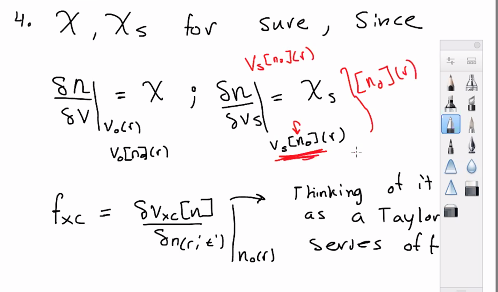 4. χ, χs for sure, since
Vs[n₀](r)
δn/δv |V₀(r) = χ ; δn/δvs | = χs } [n₀](r)
V₀[n₀](r) Vs[n₀](r)
fxc = δvxc[n]/δn(r',t') |n₀(r) → Thinking of it
as a Taylor
series of f